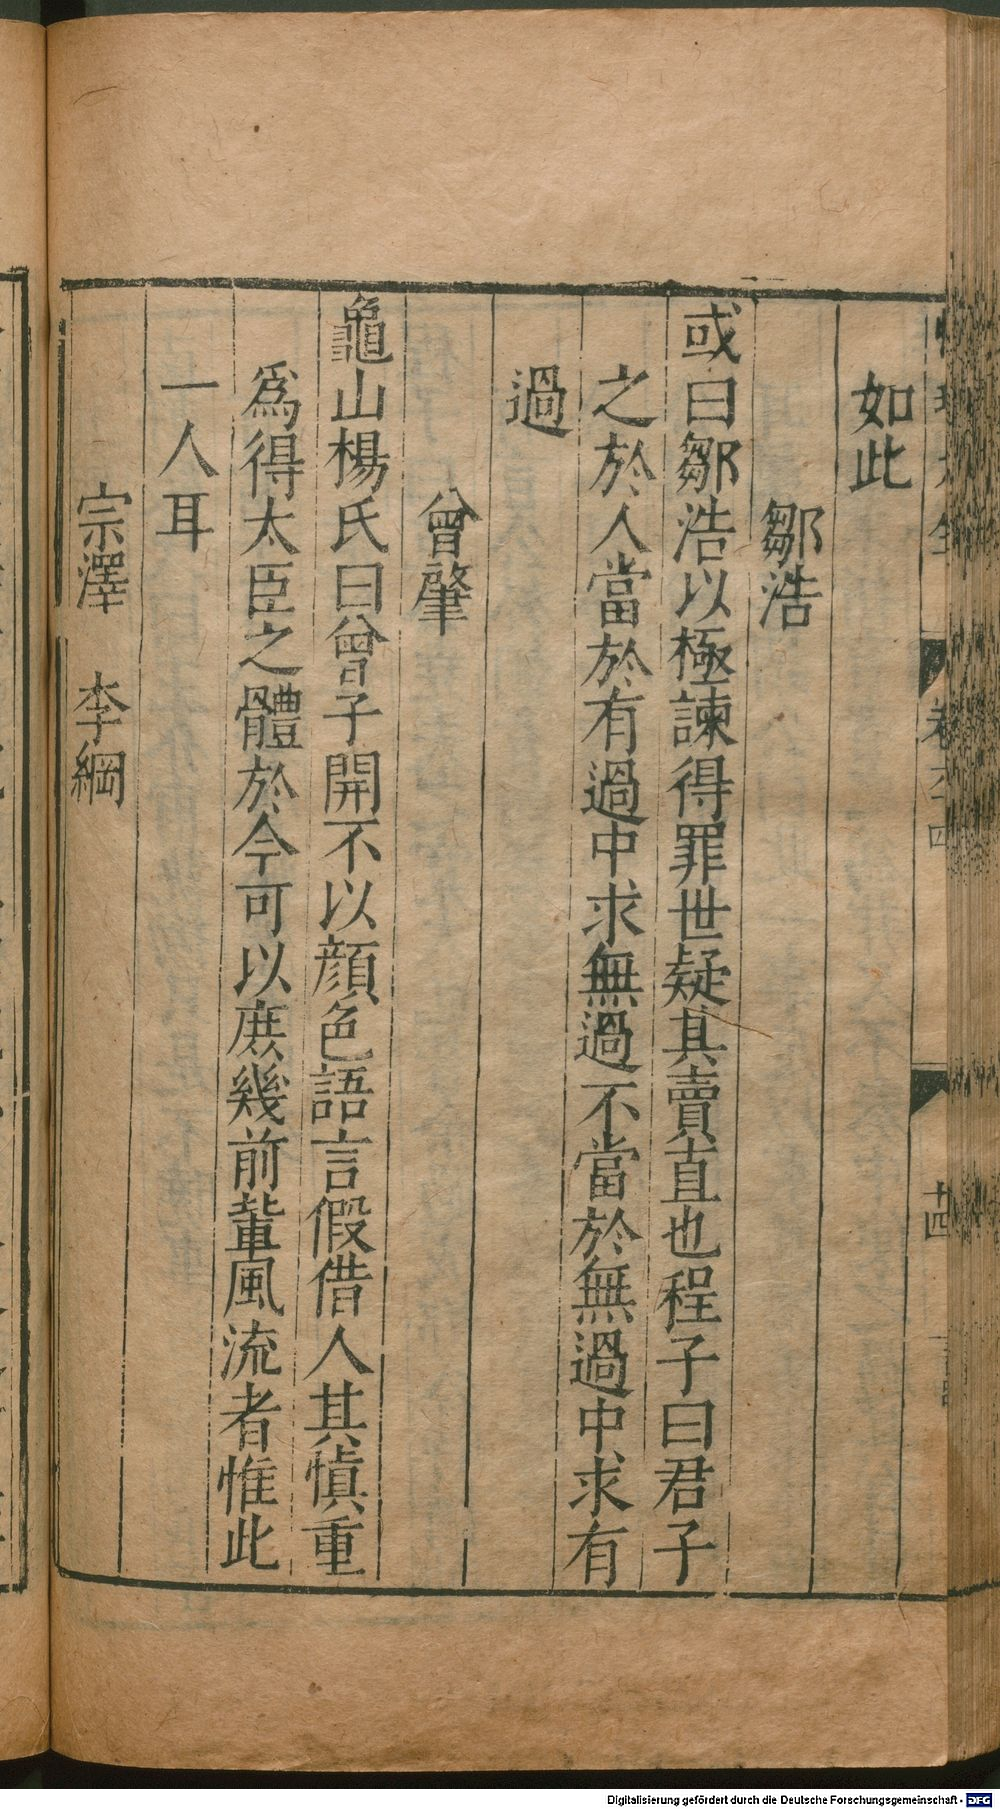 如此
鄒浩
或曰鄒浩以極諫得罪世疑其賣直也程子曰君子
之於人當於有過中求無過不當於無過中求有
過
曾肇
龜山楊氏曰曾子開不以顏色語言假借人其慎重
爲得太臣之體於今可以庶幾前輩風流者惟此
一人耳
宗澤 李綱
卷六十四
十四
Digitalisierung gefördert durch die Deutsche Forschungsgemeinschaft - DFG